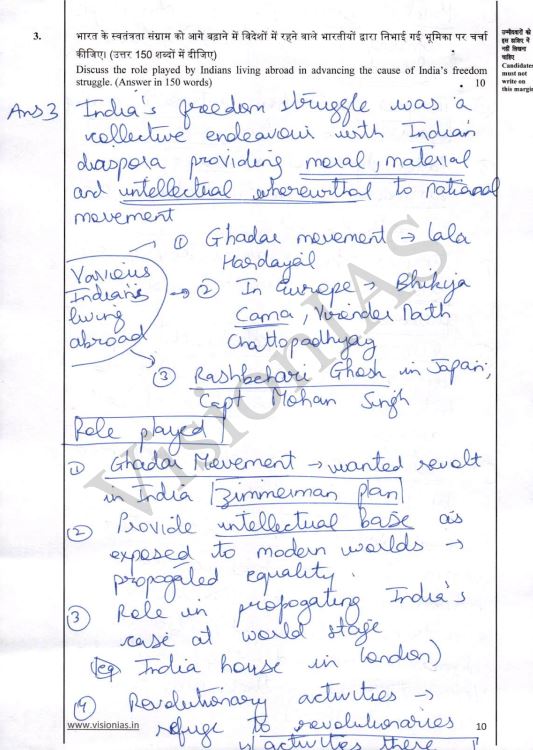 3.
भारत के स्वतंत्रता संग्राम को आगे बढ़ाने में विदेशों में रहने वाले भारतीयों द्वारा निभाई गई भूमिका पर चर्चा
कीजिए। (उत्तर 150 शब्दों में दीजिए)
Discuss the role played by Indians living abroad in advancing the cause of India's freedom
struggle. (Answer in 150 words) 10
उम्मीदवारों को
इस हाशिए में
नहीं लिखना
चाहिए
Candidates
must not
write on
this margin
Ans 3 India's freedom struggle was a
collective endeavour with Indian
diaspora providing moral, material
and intellectual wherewithal to national
movement
Various
Indians
living
abroad
① Ghadar movement → Lala
Hardayal
→ ② In Europe → Bhikija
Cama, Virender Nath
Chattopadhyay
③ Rashbehari Ghosh in Japan,
Capt Mohan Singh
Role played
① Ghadar Movement → wanted revolt
in India Zimmerman plan
② Provide intellectual base as
exposed to modern worlds →
propogated equality.
③ Role in propogating India's
case at world stage
(eg India house in London)
④ Revolutionary activities →
refuge to revolutionaries
activities there
www.visionias.in
10
VisionIAS